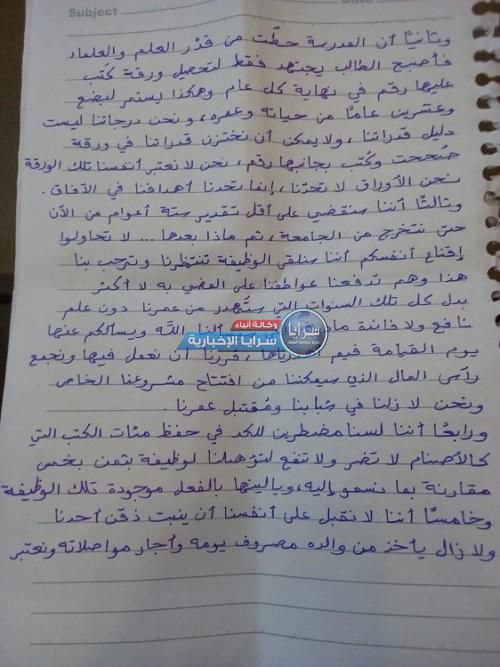 Subject
Date
وثانيًا أن المدرسة حطّت من قدْر العلم والعلماء
فأصبح الطالب يجتهد فقط لتحصيل ورقة كُتب
عليها رقم في نهاية كل عام وهكذا يستمر لبضع
وعشرين عامًا من حياته وعمره، ونحن درجاتنا ليست
دليل قدراتنا، ولا يمكن أن نختزن قدراتنا في ورقة
صُححت وكُتب بجانبها رقم، نحن لا نعتبر أنفسنا تلك الورقة
نحن الأوراق لا تحدّنا، إنما تحدنا أهدافنا في الآفاق.
وثالثًا أننا سنقضي على أقل تقدير ستة أعوام من الآن
حتى نتخرج من الجامعة، ثم ماذا بعدها... لا تحاولوا
إقناع أنفسكم أننا سنلقى الوظيفة تنتظرنا وترحب بنا
هذا وهم تدفعنا عواطفنا على المضي به لا أكثر
بدل كل تلك السنوات التي ستُهدر من عمرنا دون علم
نافع ولا فائدة الله ويسألكم عنها
يوم القيامة فيم قررنا أن نعمل فيها ونجمع
رأس المال الذي سيمكننا من افتتاح مشروعنا الخاص
ونحن لا زلنا في شبابنا ومُقتبل عمرنا.
ورابعًا أننا لسنا مضطرين للكد في حفظ مئات الكتب التي
كالأصنام لا تضر ولا تنفع لتؤهلنا لوظيفة بثمن بخس
مقارنة بما نسمو إليه، وياليتها بالفعل موجودة تلك الوظيفة
وخامسًا أننا لا نقبل على أنفسنا أن ينبت ذقن أحدنا
ولا زال يأخذ من والده مصروف يومه وأجار مواصلاته ونعتبر
وكالة أنباء
سرايا الإخبارية
سرايا